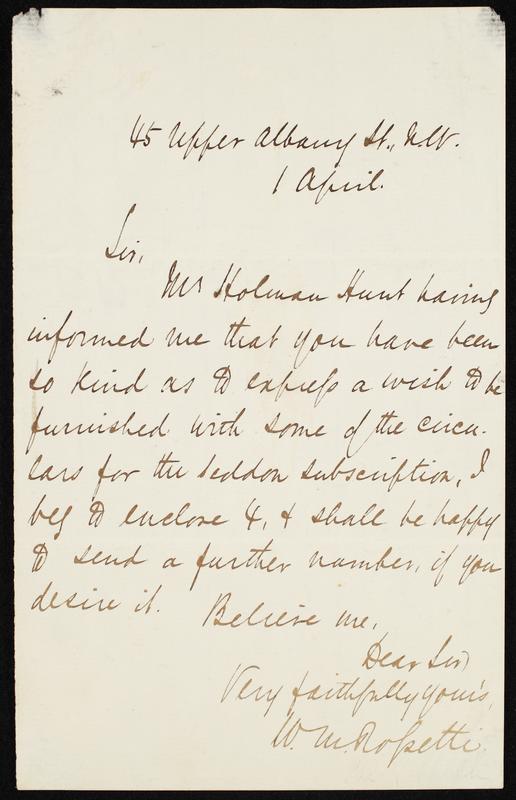 45 Upper Albany St., N.W.
1 April.
Sir,
Mr Holman Hunt having
informed me that you have been
so kind as to express a wish to be
furnished with some of the circu-
lars for the Seddon subscription, I
beg to enclose 4, & shall be happy
to send a further number, if you
desire it. Believe me,
Dear Sir,
Very faithfully yours,
W. M. Rossetti.